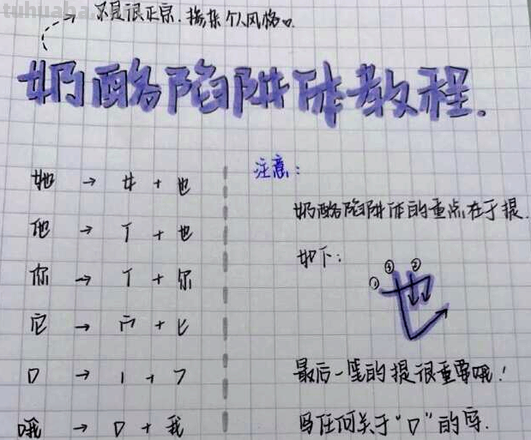 tuhuaba.
不是很正宗.掺杂个人风格。
奶酪陷阱体教程.
她 → 女 + 也
他 → 亻 + 也
你 → 亻 + 尔
它 → 宀 + 匕
口 → 丨 + フ
哦 → 口 + 我
注意:
奶酪陷阱体的重点在于提.
如下:
① ③ ②
也
最后一笔的提很重要哦!
写任何关于“口”的字.